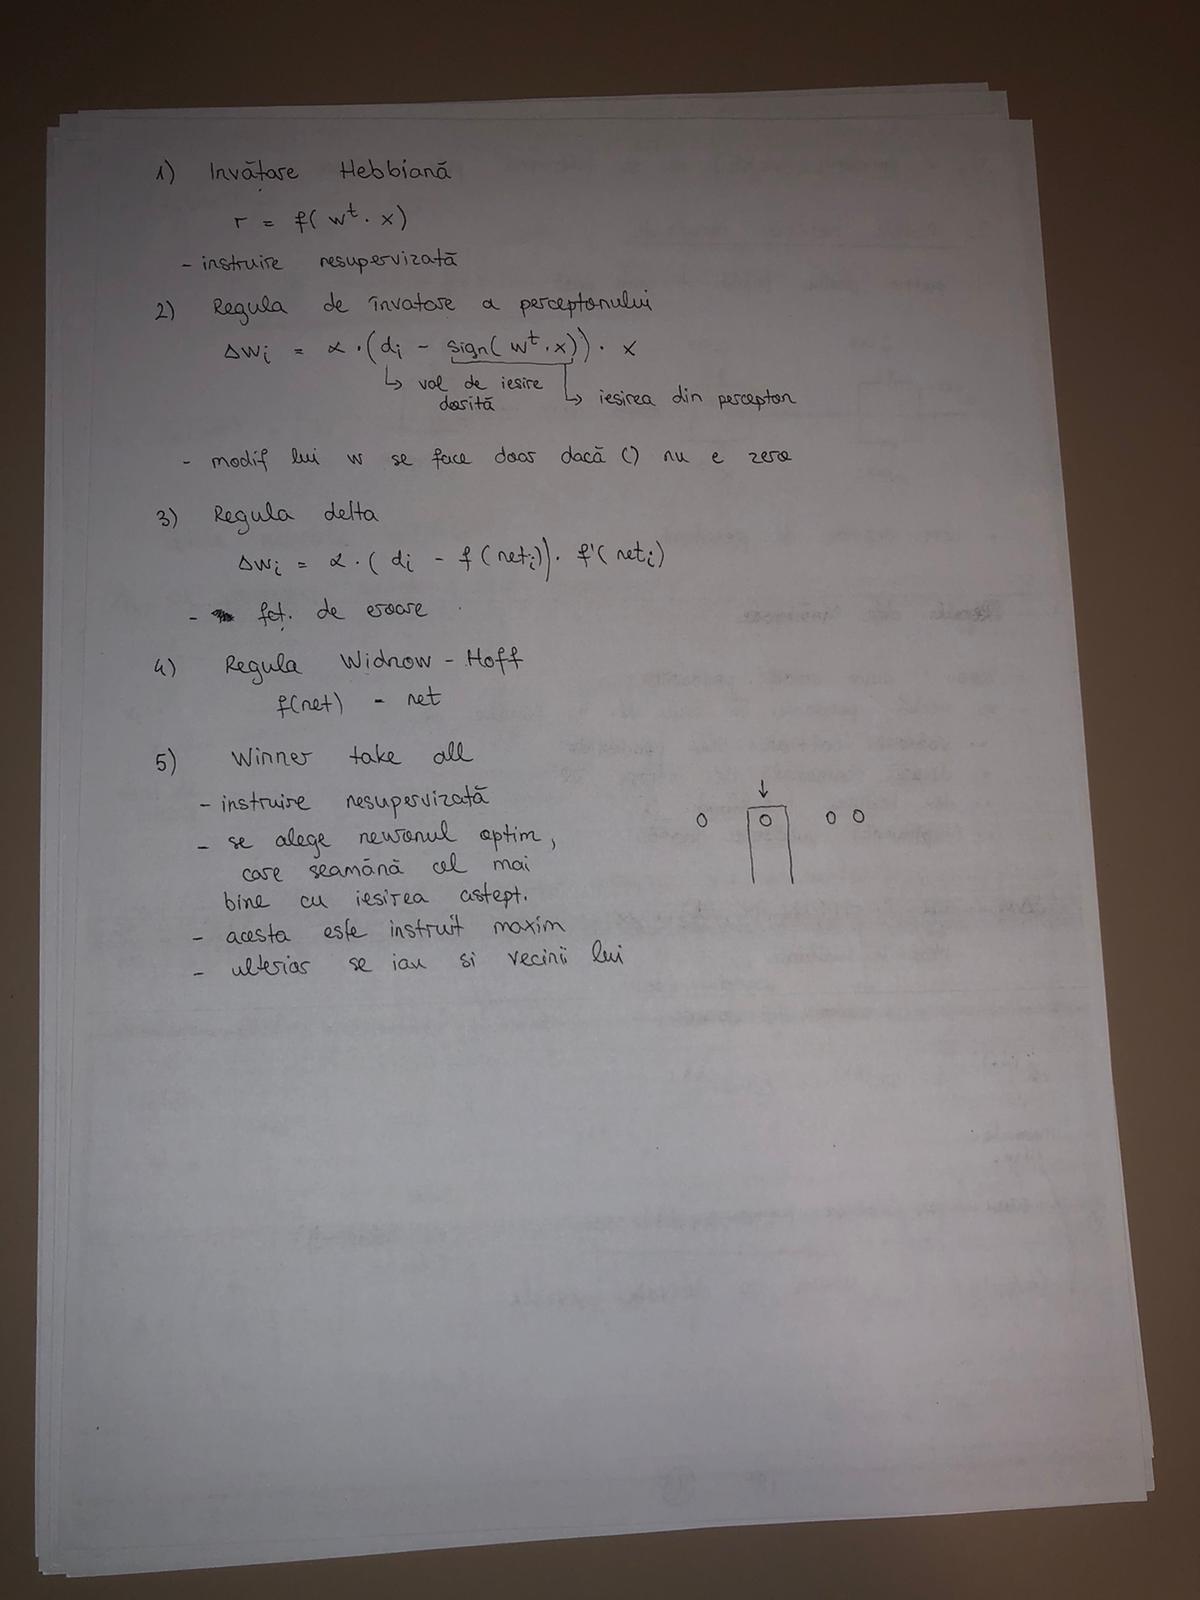 1) Invățare Hebbiană
r = f( wᵗ · x)
- instruire nesupervizată
2) Regula de învatare a perceptonului
Δwᵢ = α · (dᵢ - sign( wᵗ · x)) · x
↳ val de iesire dorită
↳ iesirea din percepton
- modif lui w se face doar dacă () nu e zero
3) Regula delta
Δwᵢ = α · ( dᵢ - f (netᵢ)) · f'( netᵢ)
- fct. de eroare
4) Regula Widrow - Hoff
f(net) = net
5) Winner take all
- instruire nesupervizată
- se alege neuronul optim,
care seamănă cel mai
bine cu iesirea astept.
- acesta este instruit maxim
- ulterior se iau si vecinii lui